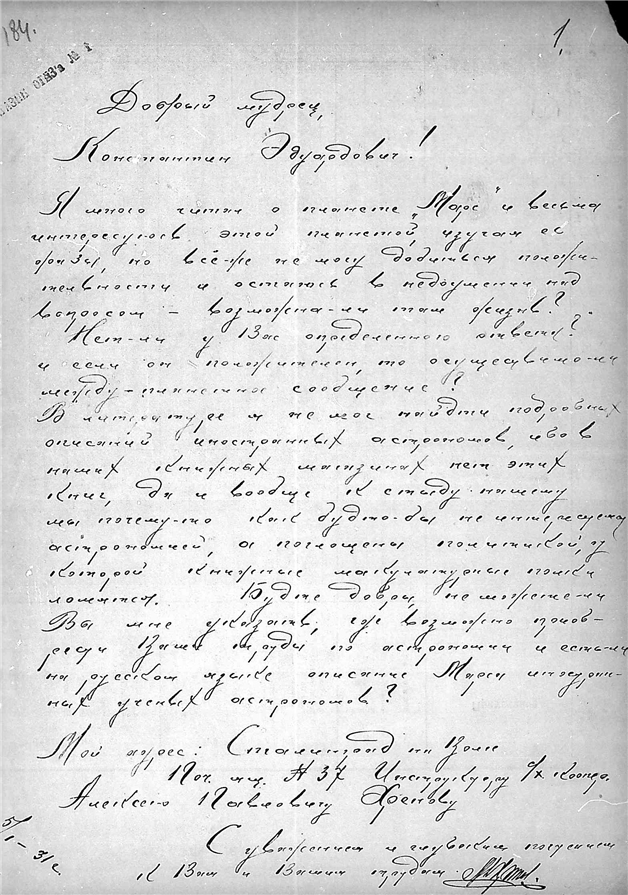 184.
1,
Добрый мудрец,
Константин Эдуардович!
Я много читал о планете „Марс" и весьма
интересуюсь этой планетой, изучая её
фазы, но всё-же не могу добиться положи-
тельности и остаюсь в недоумении над
вопросом – возможна-ли там жизнь?
Нет-ли у Вас определенного ответа?
и если он положителен, то осуществимо-ли
между-планетное сообщение?
В литературе я не мог найти подробных
описаний иностранных астрономов, ибо в
наших книжных магазинах нет этих
книг, да и вообще к стыду нашему
мы почему-то как будто-бы не интересуемся
астрономией, а поглощены политикой, от
которой книжные макулатурные полки
ломятся. Будьте добры, не можете-ли
Вы мне указать, где возможно приоб-
рести Ваши труды по астрономии и есть-ли
на русском языке описание Марса иностран-
ных ученых астрономов?
Мой адрес: Сталинград на Волге
Поч. ящ. № 37 Инструктору с/х коопер.
Алексею Павловичу Хренову
5/I – 31 г.
С уважением и глубоким почтением
к Вам и Вашим трудам